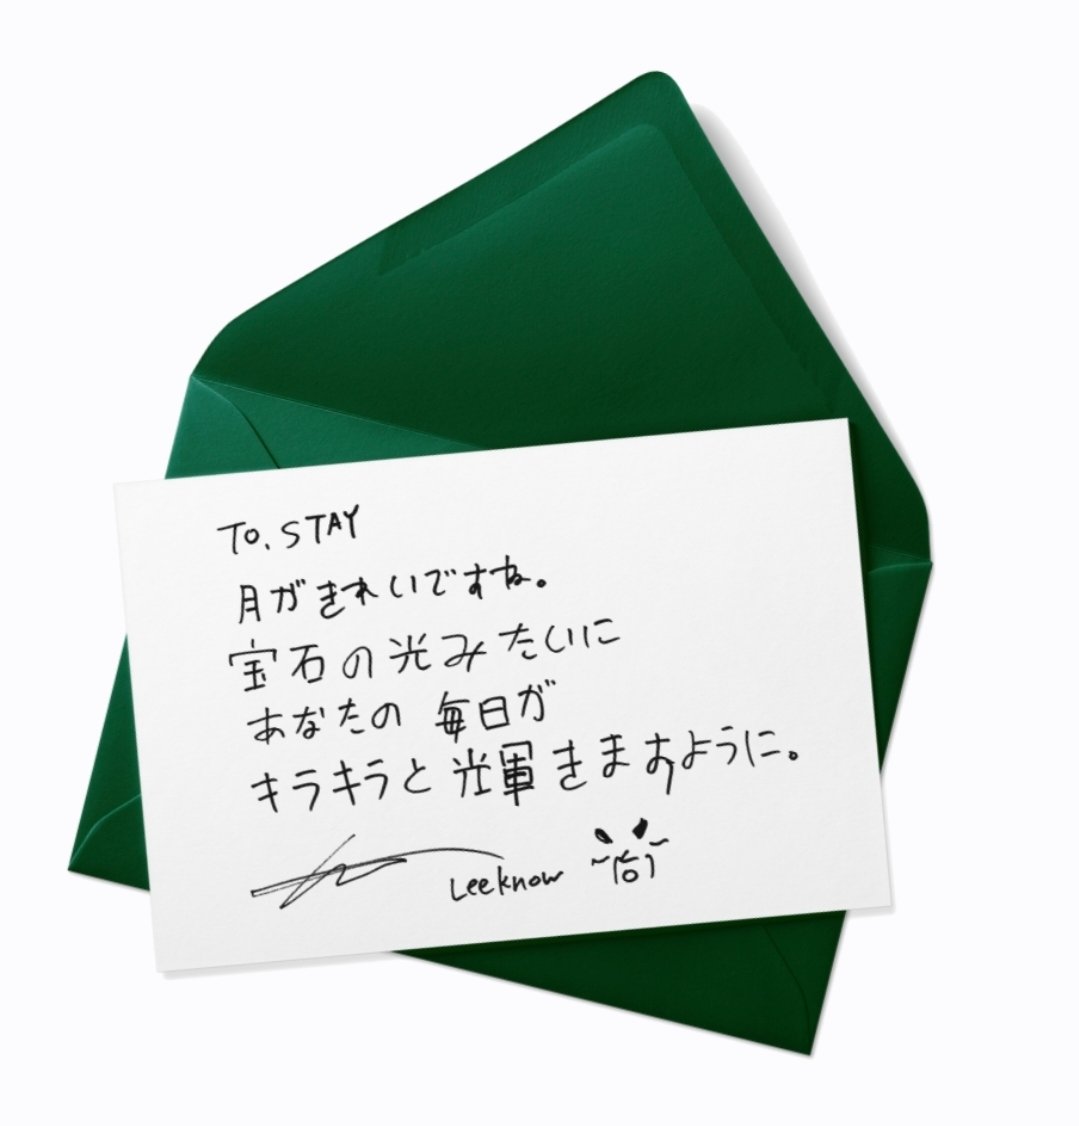 To. STAY
月がきれいですね。
宝石の光みたいに
あなたの 毎日が
キラキラと 輝きますように。
Leeknow